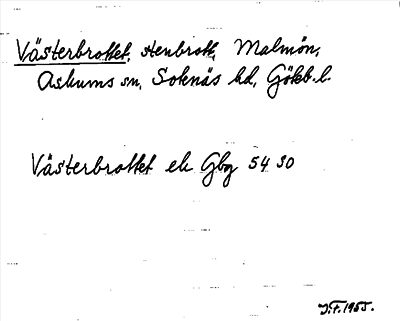 Västerbrottet, stenbrott, Malmön,
Askums sn, Sotenäs hd, Götebl.
Västerbrottet ek Gbg 54 30
J.F. 1955.